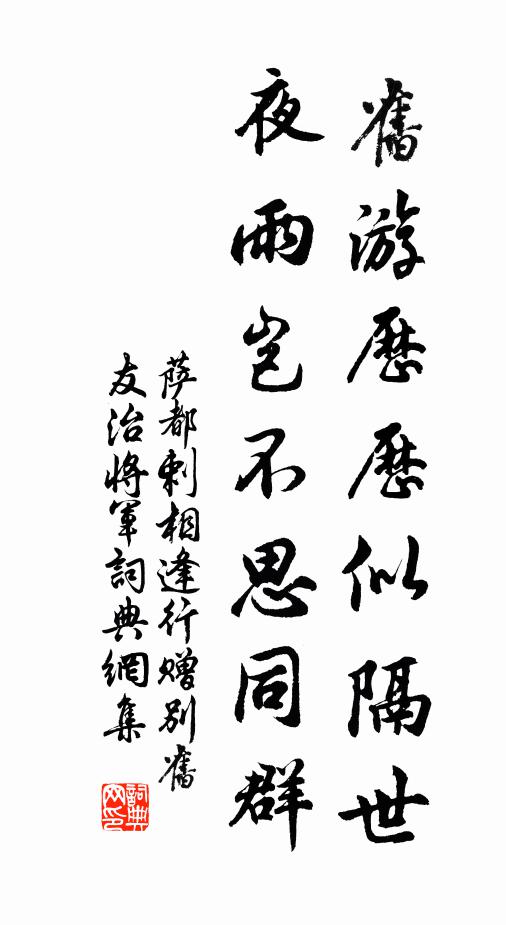 舊游歷歷似隔世
夜雨豈不思同群
薩都剌相逢行贈別舊
友治將軍詞典網集
詞典网印